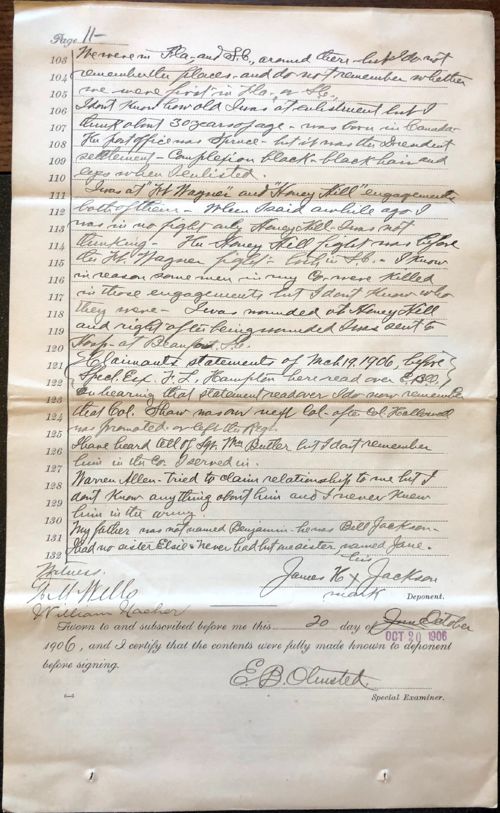 Page 11-
103 We were in Fla- and S.C., around there but I do not
104 remember the places- and do not remember whether
105 we were first in Fla, or S.C.
106 I dont know how old I was at enlistment but I
107 think about 30 years of age - was born in Canada-
108 The post office was Spruce - but it was the
109 settlement - Complexion black - black hair and
110 eyes when I enlisted.
111 I was at "Ft Wagner" and "Honey Hill" engagements
112 both of them - When I said awhile ago I
113 was in no fight only Honey Hill - I was not
114 thinking - The Honey Hill fight was before
115 the Ft. Wagner fight - both in S.C. - I know
116 in reason some men in my Co. were killed
117 in those engagements but I dont know who
118 they were - I was wounded at Honey Hill
119 and right after being wounded I was sent to
120 Hosp- at Beaufort, S.C.
121 Claimants statements of Mch 19, 1906, before
122 Specl Ex. F. L. Hampton here read over E.B.O.
123 On hearing that statement read over I do now remember
124 that Col. Shaw was our next Col- after Col. Hallowell
125 was promoted or left the Reg-
126 I have heard tell of Sgt. Wm Butler but I dont remember
127 him in the Co. I served in.
128 Warren Allen - tried to claim relationship to me but I
129 dont know anything about him and I never knew
130 him in the army.
131 My father was not named Benjamin - he was Bill Jackson -
132 I had no sister Elsie - never had but one sister, named Jane.
Witness.
his
James H X Jackson
mark Deponent.
Wells
William
Sworn to and subscribed before me this 20 day of June October
OCT 20 1906
1906, and I certify that the contents were fully made known to deponent
before signing.
E. B. Olmsted.
Special Examiner.